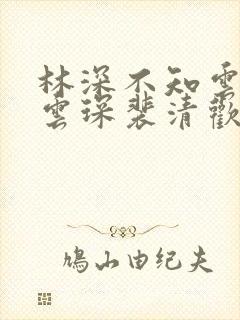 林深不知雲
雲琛裴清歡
鳩山由纪夫